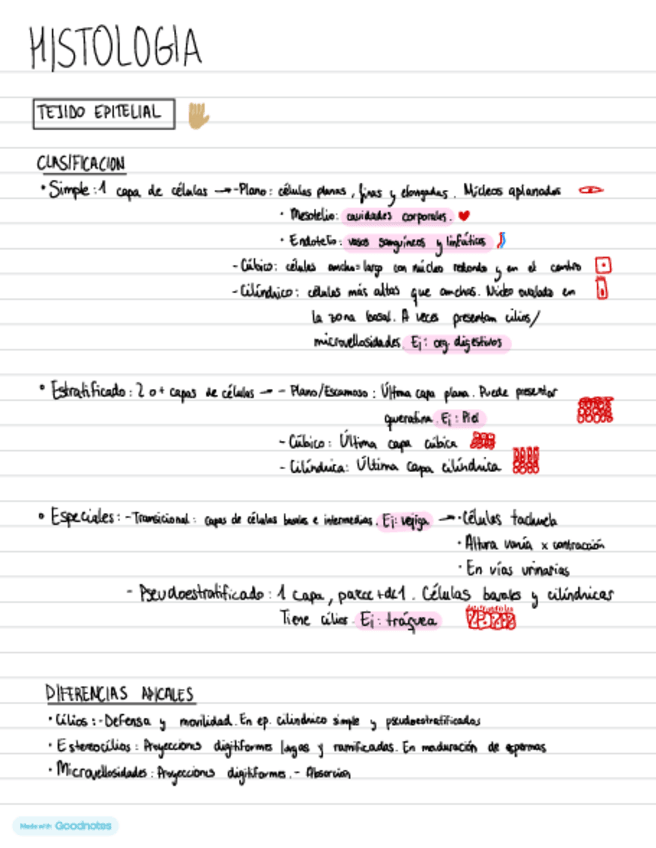 HISTOLOGIA
TEJIDO EPITELIAL
CLASIFICACION
• Simple: 1 capa de células → - Plano: células planas, finas y elongadas. Núcleos aplanados
• Mesotelio: cavidades corporales.
• Endotelio: vasos sanguíneos y linfáticos
- Cúbico: células ancho=largo con núcleo redondo y en el centro
- Cilíndrico: células más altas que anchas. Núcleo ovalado en
la zona basal. A veces presentan cilios/
microvellosidades. Ej: org. digestivos
• Estratificado: 2 o + capas de células → - Plano/Escamoso: Última capa plana. Puede presentar
queratina. Ej: Piel
- Cúbico: Última capa cúbica
- Cilíndrica: Última capa cilíndrica
• Especiales: - Transicional: capas de células basales e intermedias. Ej: vejiga → • Células tachuela
• Altura varía x contracción
• En vías urinarias
- Pseudoestratificado: 1 capa, parece + de 1. Células basales y cilíndricas
Tiene cilios. Ej: tráquea
DIFERENCIAS APICALES
• Cilios: - Defensa y movilidad. En ep. cilíndrico simple y pseudoestratificadas
• Estereocilios: Proyecciones digitiformes largas y ramificadas. En maduración de espermas
• Microvellosidades: Proyecciones digitiformes. - Absorción
Made with Goodnotes